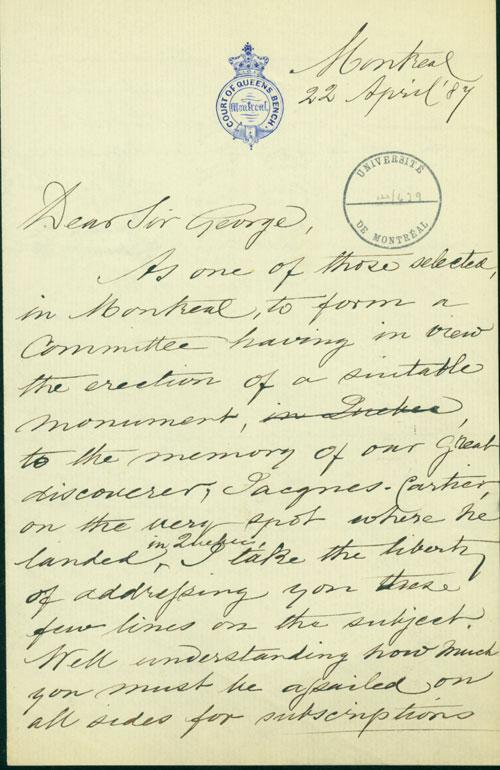 Montreal
22 April '87
COURT OF QUEENS BENCH.
Montreal
UNIVERSITÉ
DE MONTRÉAL
Dear Sir George,
As one of those selected,
in Montreal, to form a
Committee having in view
the erection of a suitable
monument, in Quebec,
to the memory of our great
discoverer, Jacques-Cartier,
on the very spot where he
landed, in Quebec, I take the liberty
of addressing you these
few lines on the subject.
Well understanding how much
you must be assailed on
all sides for subscriptions